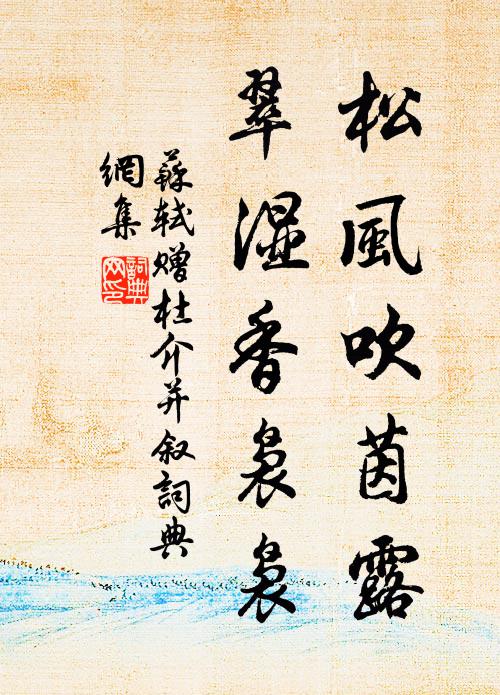 松風吹茵露
翠濕香裊裊
蘇軾贈杜介并叙詞典
網集
詞典網印